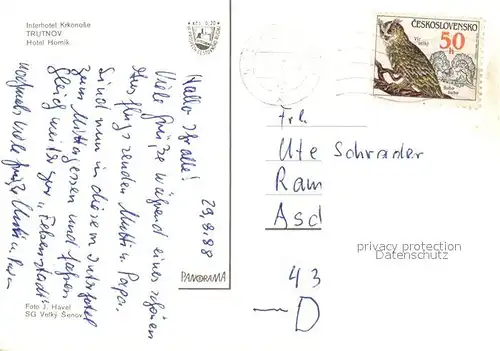 Interhotel Krkonoše
TRUTNOV
Hotel Horník
KčS 0,50
Hallo Ihr alle! 29.8.88
Viele Grüße während eines schönen
Ausfluges senden Mutti u. Papa.
Sind nun in diesem Interhotel
zum Mittagessen und fahren
gleich weiter zur „Felsenstadt“
nochmals viele Grüße Mutti u. Papa
PANORAMA
Foto J. Havel
SG Velký Šenov
ČESKOSLOVENSKO
50 h
Výr velký
Bubo bubo
Frl.
Ute Schrader
Ram
Asd
privacy protection
Datenschutz
43
— D